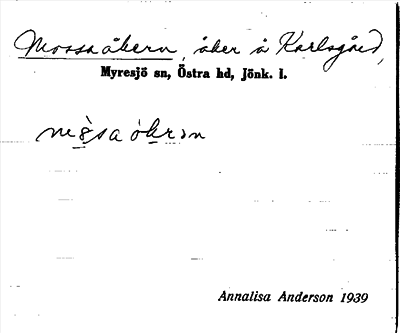 Mossaåkern, åker å Karlsgård,
Myresjö sn, Östra hd, Jönk. l.
Annalisa Anderson 1939